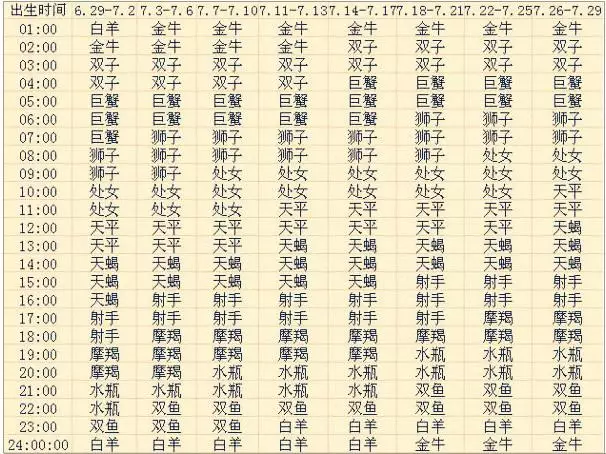 出生时间 6.29-7.2 7.3-7.6 7.7-7.10 7.11-7.13 7.14-7.17 7.18-7.21 7.22-7.25 7.26-7.29
01:00 白羊 金牛 金牛 金牛 金牛 金牛 金牛 金牛
02:00 金牛 金牛 金牛 金牛 双子 双子 双子 双子
03:00 双子 双子 双子 双子 双子 双子 双子 双子
04:00 双子 双子 双子 双子 巨蟹 巨蟹 巨蟹 巨蟹
05:00 巨蟹 巨蟹 巨蟹 巨蟹 巨蟹 巨蟹 巨蟹 巨蟹
06:00 巨蟹 巨蟹 巨蟹 巨蟹 巨蟹 狮子 狮子 狮子
07:00 巨蟹 狮子 狮子 狮子 狮子 狮子 狮子 狮子
08:00 狮子 狮子 狮子 狮子 狮子 狮子 处女 处女
09:00 狮子 狮子 处女 处女 处女 处女 处女 处女
10:00 处女 处女 处女 处女 处女 处女 处女 天平
11:00 处女 处女 处女 天平 天平 天平 天平 天平
12:00 天平 天平 天平 天平 天平 天平 天平 天蝎
13:00 天平 天平 天平 天平 天蝎 天蝎 天蝎 天蝎
14:00 天蝎 天蝎 天蝎 天蝎 天蝎 天蝎 天蝎 天蝎
15:00 天蝎 天蝎 天蝎 天蝎 天蝎 射手 射手 射手
16:00 天蝎 射手 射手 射手 射手 射手 射手 射手
17:00 射手 射手 射手 射手 射手 射手 摩羯 摩羯
18:00 射手 摩羯 摩羯 摩羯 摩羯 摩羯 摩羯 摩羯
19:00 摩羯 摩羯 摩羯 摩羯 摩羯 水瓶 水瓶 水瓶
20:00 摩羯 摩羯 水瓶 水瓶 水瓶 水瓶 水瓶 水瓶
21:00 水瓶 水瓶 水瓶 水瓶 水瓶 双鱼 双鱼 双鱼
22:00 水瓶 双鱼 双鱼 双鱼 双鱼 双鱼 双鱼 双鱼
23:00 双鱼 双鱼 双鱼 白羊 白羊 白羊 白羊 白羊
24:00:00 白羊 白羊 白羊 白羊 白羊 金牛 金牛 金牛